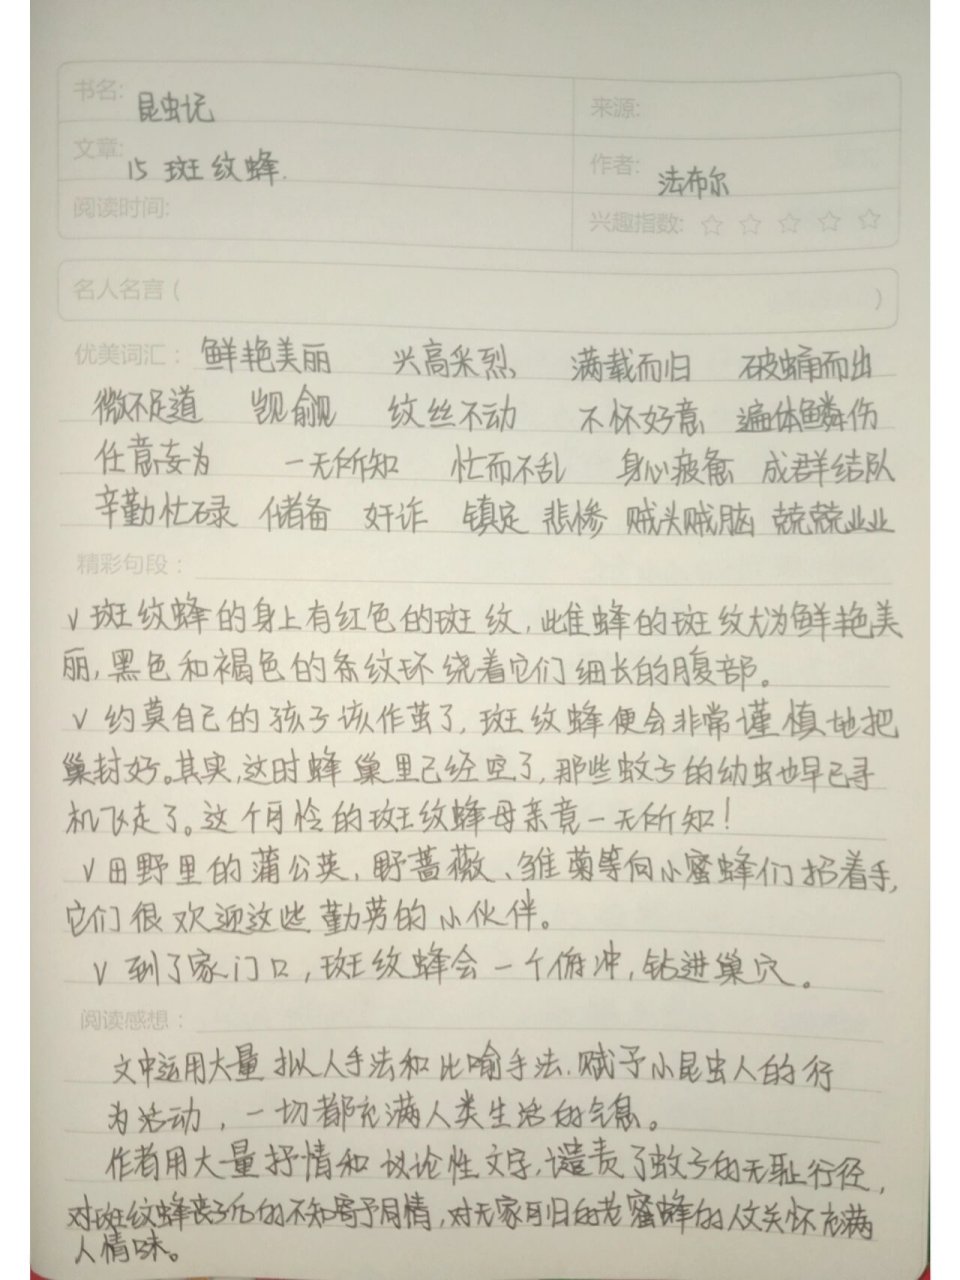 书名: 昆虫记 来源:
文章: 15 斑纹蜂. 作者: 法布尔
阅读时间: 兴趣指数: ☆ ☆ ☆ ☆ ☆
名人名言 ( )
优美词汇: 鲜艳美丽 兴高采烈 满载而归 破蛹而出
微不足道 觊觎 纹丝不动 不怀好意 遍体鳞伤
任意妄为 一无所知 忙而不乱 身心疲惫 成群结队
辛勤忙碌 储备 奸诈 镇定 悲惨 贼头贼脑 兢兢业业
精彩句段:
√ 斑纹蜂的身上有红色的斑纹,雌蜂的斑纹尤为鲜艳美
丽,黑色和褐色的条纹环绕着它们细长的腹部。
√ 约莫自己的孩子该作茧了,斑纹蜂便会非常谨慎地把
巢封好。其实,这时蜂巢里已经空了,那些蚊子的幼虫也早已寻
机飞走了。这个可怜的斑纹蜂母亲竟一无所知!
√ 田野里的蒲公英、野蔷薇、雏菊等向小蜜蜂们招着手,
它们很欢迎这些勤劳的小伙伴。
√ 到了家门口,斑纹蜂会一个俯冲,钻进巢穴。
阅读感想:
文中运用大量拟人手法和比喻手法.赋予小昆虫人的行
为活动,一切都充满人类生活的气息。
作者用大量抒情和议论性文字,谴责了蚊子的无耻行径,
对斑纹蜂丧子后的不知寄予同情,对无家可归的老蜜蜂的人文关怀充满
人情味。